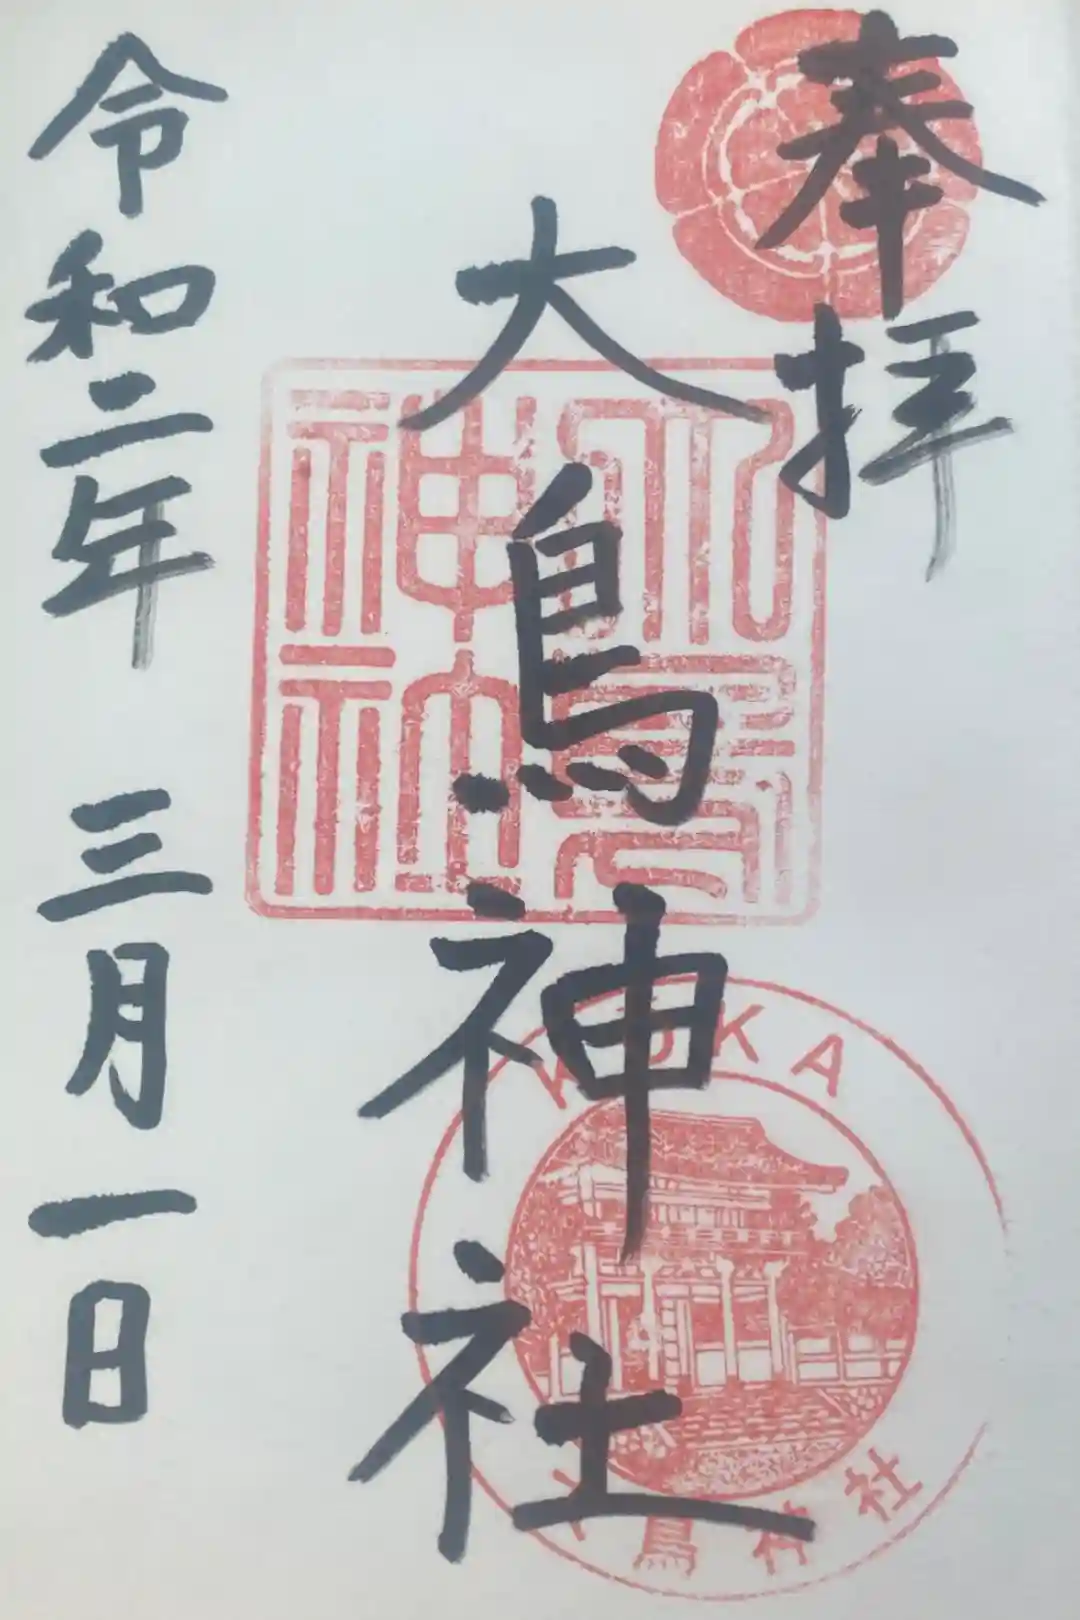 奉拝
大鳥神社
令和二年 三月一日
大鳥神社
KOKA
大鳥神社